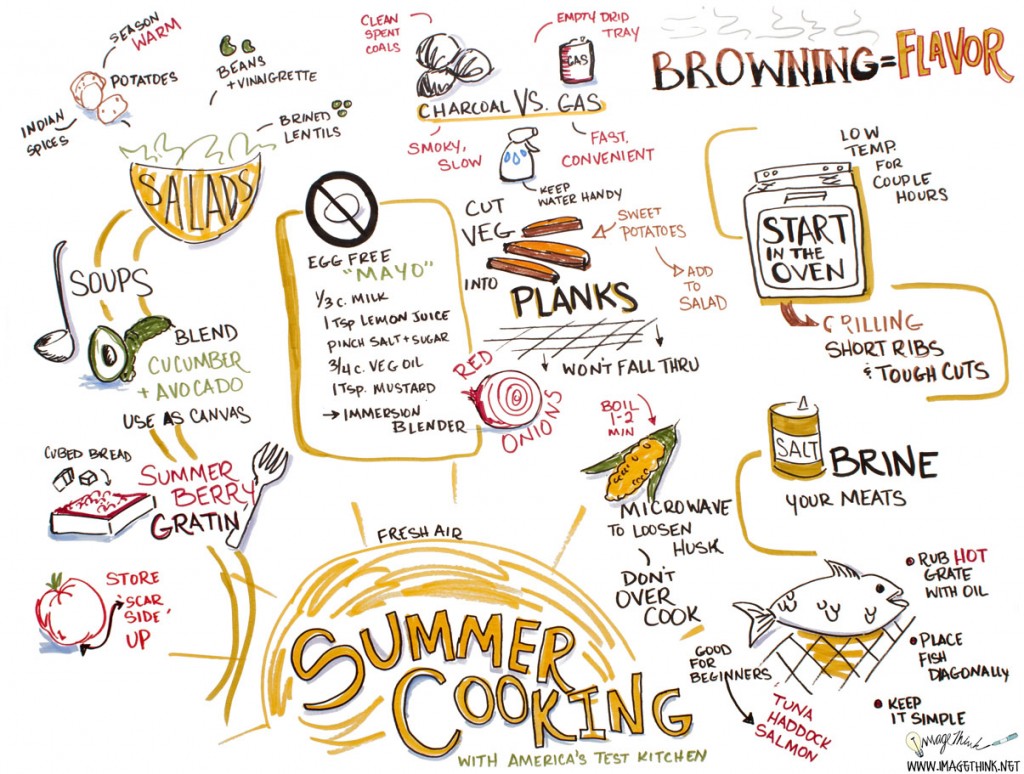 SEASON
WARM
POTATOES
INDIAN
SPICES
BEANS
+ VINAIGRETTE
BRINED
LENTILS
SALADS
SOUPS
BLEND
CUCUMBER
+ AVOCADO
USE AS CANVAS
CUBED BREAD
SUMMER
BERRY
GRATIN
STORE
"SCAR
SIDE"
UP
CLEAN
SPENT
COALS
EMPTY DRIP
TRAY
GAS
CHARCOAL VS. GAS
SMOKY,
SLOW
FAST,
CONVENIENT
KEEP
WATER HANDY
EGG FREE
"MAYO"
1/3 C. MILK
1 TSP LEMON JUICE
PINCH SALT + SUGAR
3/4 C. VEG OIL
1 TSP. MUSTARD
→ IMMERSION
BLENDER
CUT
VEG
INTO
PLANKS
SWEET
POTATOES
ADD
TO
SALAD
WON'T FALL THRU
RED
ONIONS
BOIL
1-2
MIN
MICROWAVE
TO LOOSEN
HUSK
DON'T
OVER
COOK
BROWNING=FLAVOR
LOW
TEMP.
FOR
COUPLE
HOURS
START
IN THE
OVEN
GRILLING
SHORT RIBS
& TOUGH CUTS
SALT
BRINE
YOUR MEATS
• RUB HOT
GRATE
WITH OIL
• PLACE
FISH
DIAGONALLY
• KEEP
IT SIMPLE
GOOD
FOR
BEGINNERS
TUNA
HADDOCK
SALMON
FRESH AIR
SUMMER
COOKING
WITH AMERICA'S TEST KITCHEN
ImageThink
WWW.IMAGETHINK.NET